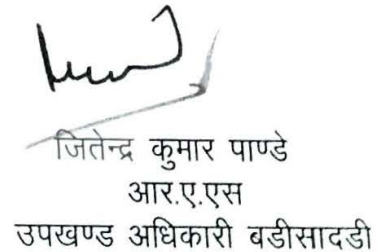 जितेन्द्र कुमार पाण्डे
आर.ए.एस
उपखण्ड अधिकारी बडीसादडी